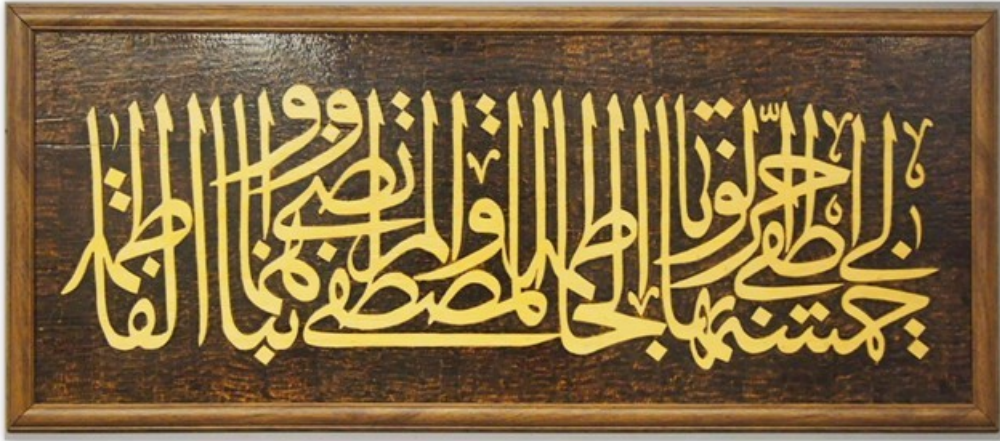 لي خمسة أطفي بها حر الوباء الحاطمة المصطفى والمرتضى وابناهما والفاطمة